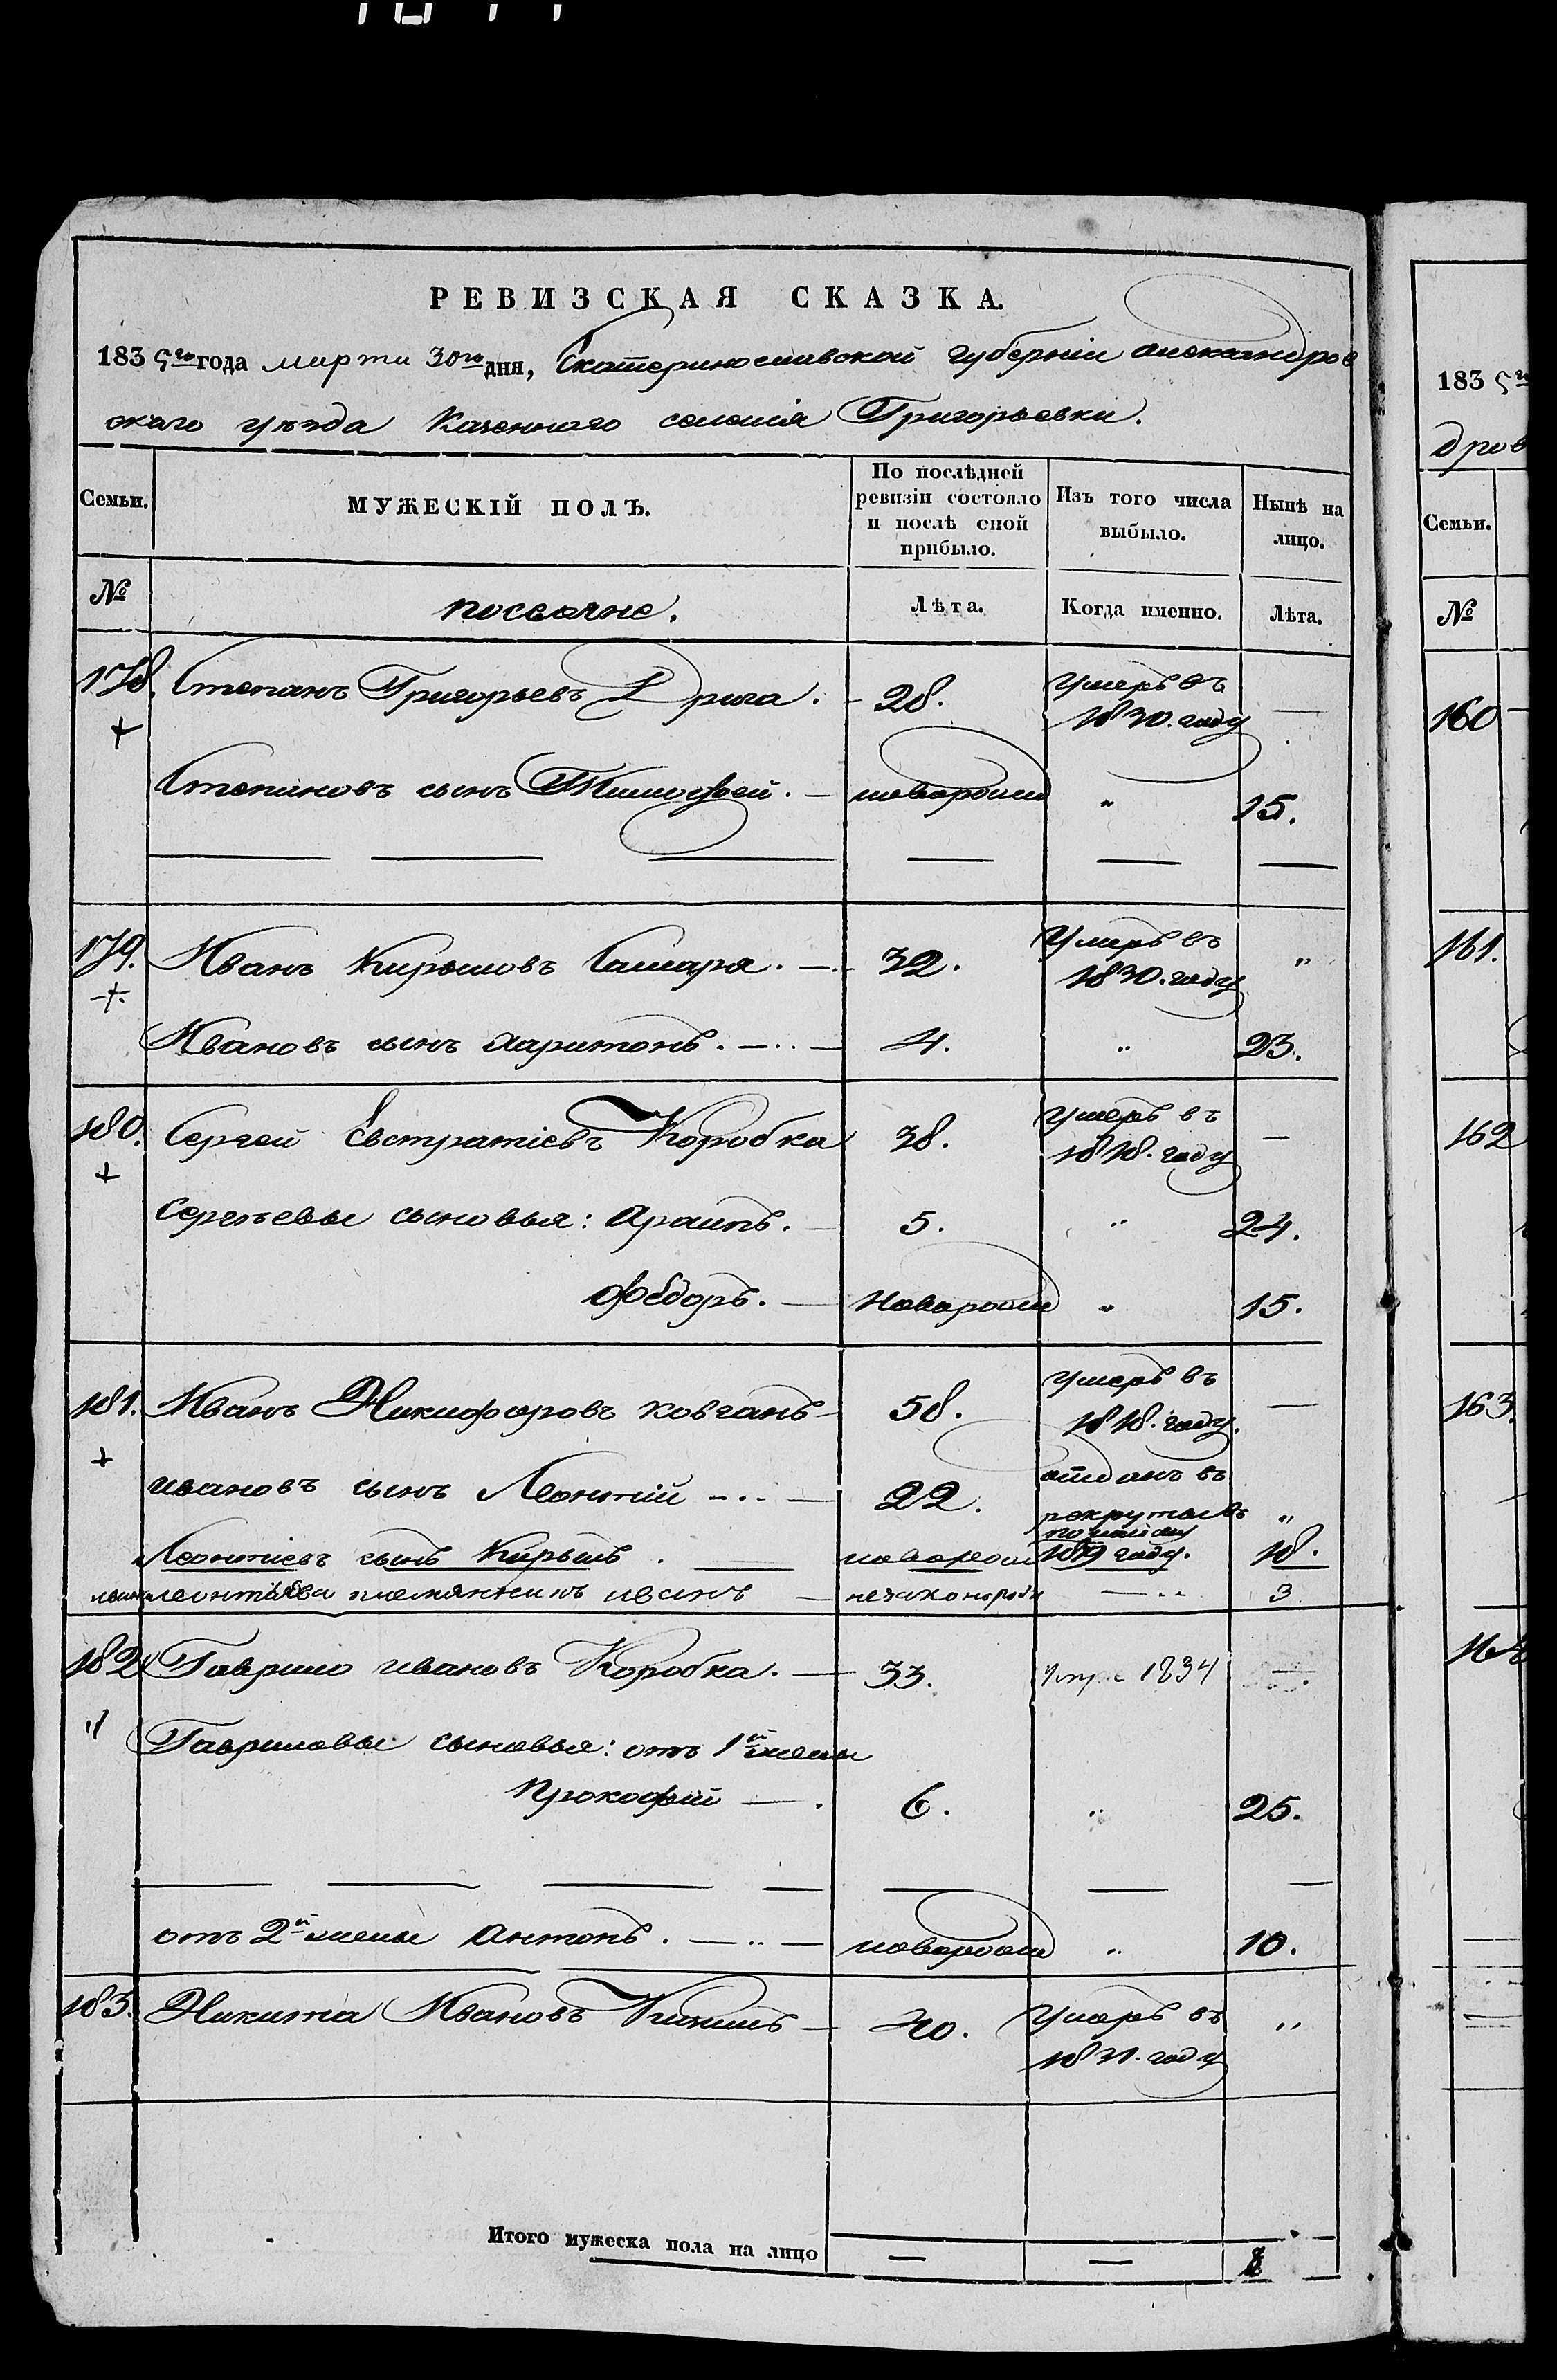 РЕВИЗСКАЯ СКАЗКА.
183 5го года марта 30го дня, Екатеринославской губернiи александров
скаго уѣзда Казенного селенiя Григорьевки.
Семьи. МУЖЕСКІЙ ПОЛЪ. По послѣдней ревизіи состояло и послѣ оной прибыло. Изъ того числа выбыло. Нынѣ на лицо.
№ поселяне. Лѣта. Когда именно. Лѣта.
178. Степанъ Григорьевъ Дрига. 28. Умеръ въ 1830. году —
Степановъ сынъ Тимофей. — новорожд " 15.
179. Иванъ Кириловъ Сашара. — 32. Умеръ въ 1830. году "
Ивановъ сынъ Харитонъ. — 4. " 23.
180. Сергей Евстратіевъ Коробка 38. умеръ въ 1818. году —
Сергѣевы сыновья: Архипъ. — 5. " 24.
Федоръ. — Новорожд " 15.
181. Иванъ Никифоровъ Ковганъ — 58. умеръ въ 1818. году. —
ивановъ сынъ Леонтій — 22. отданъ въ рекруты въ 1819 году. "
Леонтіевъ сынъ Кирылъ. — новорожд 18.
леонтьева племянникъ иванъ — незаконорожд — 3
182 Гаврило ивановъ Коробка. — 33. умре 1834 —
Гавриловы сыновья: отъ 1й жены
Прокофій — 6. " 25.
отъ 2й жены антонъ. — новорожд " 10.
183. Никита Ивановъ — 40. Умеръ въ 1831. году "
Итого мужеска пола на лицо — —
183 5го
дров
Семьи.
№
160
161.
162
163.
164